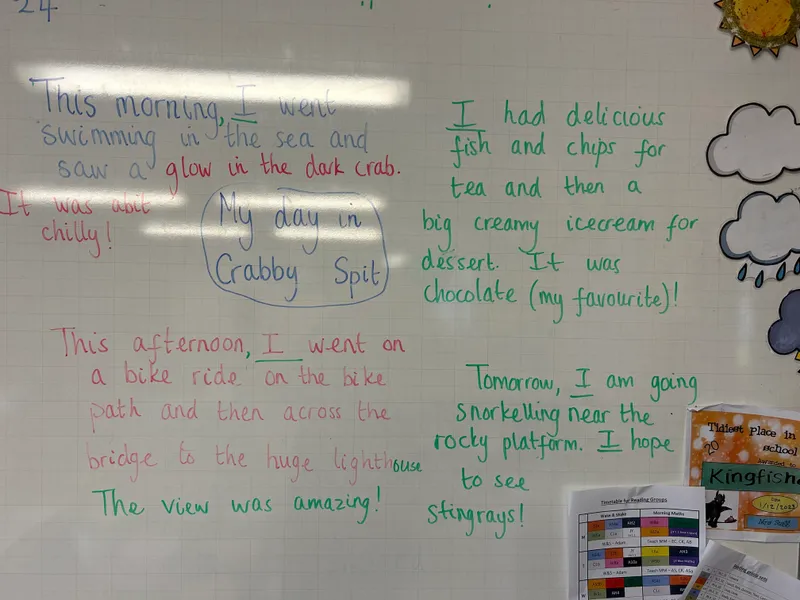 24
This morning, I went
swimming in the sea and
saw a glow in the dark crab.
It was abit
chilly!
My day in
Crabby Spit
This afternoon, I went on
a bike ride on the bike
path and then across the
bridge to the huge lighthouse
The view was amazing!
I had delicious
fish and chips for
tea and then a
big creamy icecream for
dessert. It was
chocolate (my favourite)!
Tomorrow, I am going
snorkelling near the
rocky platform. I hope
to see
stingrays!
Tidiest Place in
school
20
Awarded to
Kingfish
1/12/2023
Timetable for Reading Groups
Morning Maths